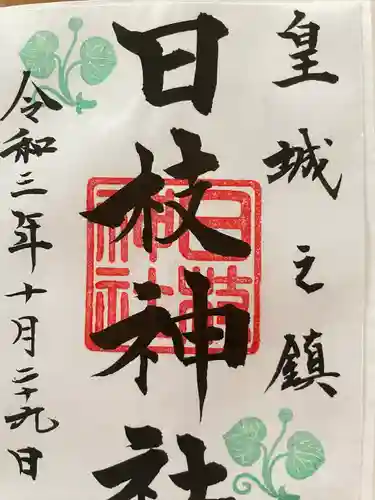 皇城之鎮
日枝神社
令和三年十月二十九日
日枝神社